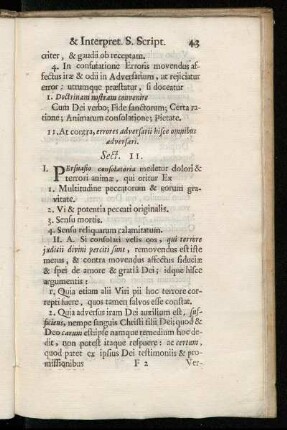 & Interpret. S. Script. 43
criter, & gaudii ob receptam.
4. In confutatione Erroris movendus af-
fectus iræ & odii in Adversarium, ut rejiciatur
error: utrumque præstatur, si doceatur
1. Doctrinam nostram convenire
Cum Dei verbo; Fide sanctorum; Certa ra-
tione; Animarum consolatione; Pietate.
11. At contra, errores adversarii hisce omnibus
adversari.
Sect. 11.
I. PErsuasio consolatoria medetur dolori &
terrori animæ, qui oritur Ex
1. Multitudine peccatorum & eorum gra-
vitate.
2. Vi & potentia peccati originalis.
3. Sensu mortis.
4. Sensu reliquarum calamitatum.
II. A. Si consolari velis eos, qui terrore
judicii divini perciti sunt, removendus est iste
metus, & contra movendus affectus fiduciæ
& spei de amore & gratia Dei; idque hisce
argumentis:
1. Quia etiam alii Viri pii hoc terrore cor-
repti fuere, quos tamen salvos esse constat.
2. Quia adversus iram Dei auxilium est, suf-
ficiens, nempe sanguis Christi filii Dei; quod &
Deo carum est; ipse namque remedium hoc de-
dit, non potest itaque respuere: ac certum,
quod patet ex ipsius Dei testimoniis & pro-
missionibus F 2 Ver-